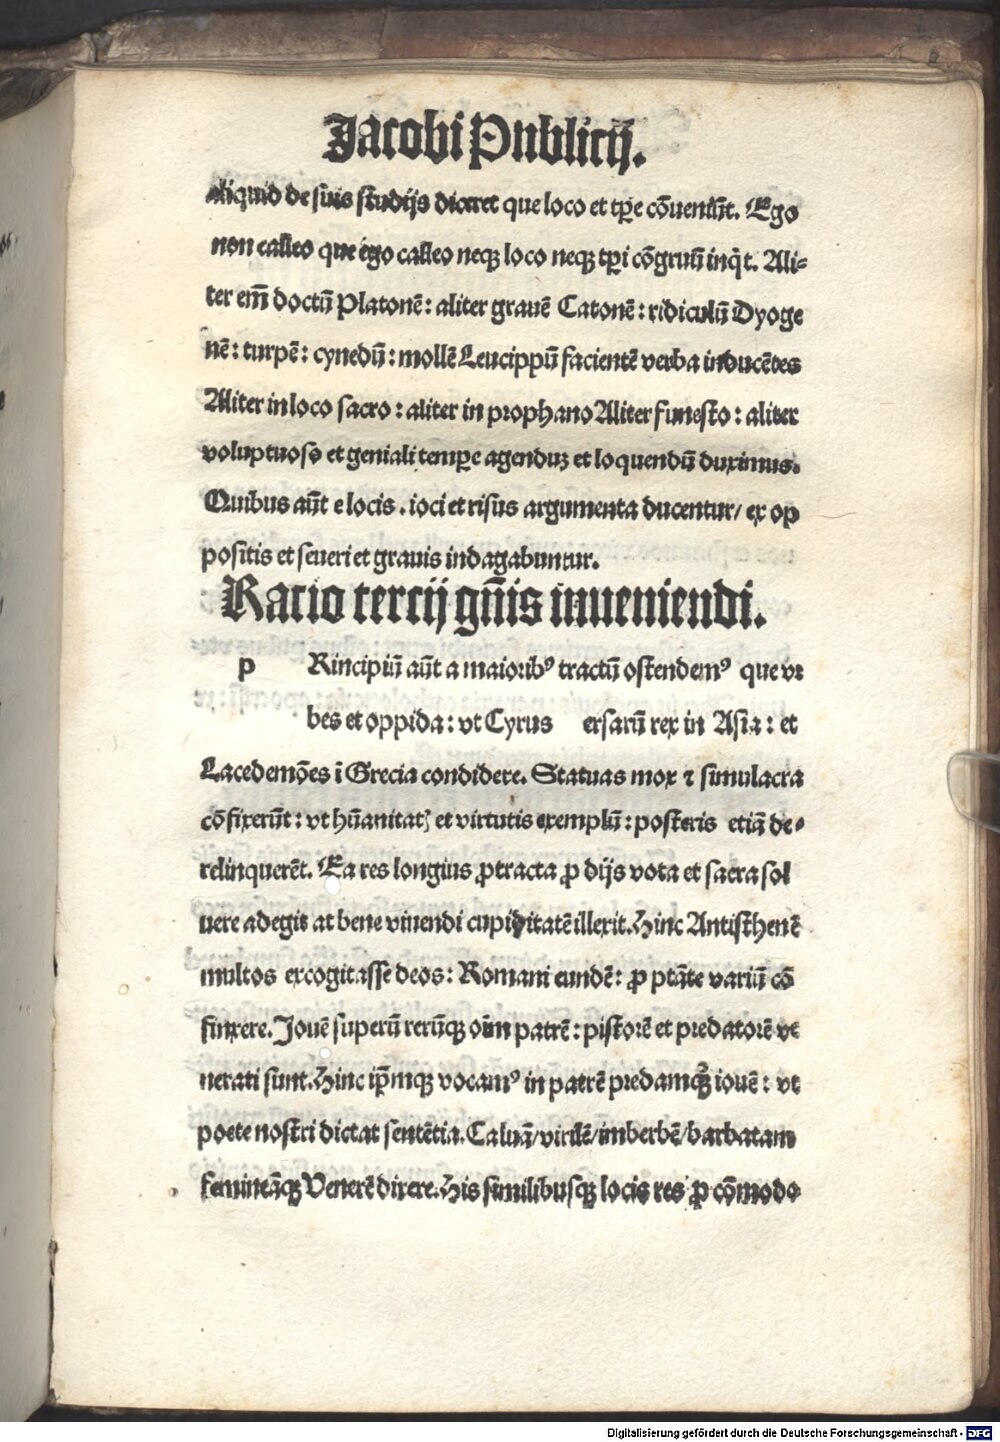 Jacobi Publicij.
aliquid de suis studijs diceret que loco et tꝑe cõueniũt. Ego
non calleo que ego calleo neqꝫ loco neqꝫ tꝑi cõgruũt inq̇t. Ali⸗
ter em̃ doctũ Platonẽ: aliter grauẽ Catonẽ: ridiculũ Dyoge
nẽ: turpẽ: cynedũ: mollẽ Leucippũ facientẽ verba inducẽtes
Aliter in loco sacro: aliter in prophano Aliter funesto: aliter
voluptuoso et geniali tempꝛe agenduꝫ et loquendũ duximus.
Quibus aũt e locis . ioci et risus argumenta ducentur/ ex op
positis et seueri et grauis indagabuntur.
Ratio tercij gñis inueniendi.
p Rincipiũ aũt a maioribꝰ tractũ ostendemꝰ que vr
bes et oppida: vt Cyrus ersarũ rex in Asia: et
Lacedemões ĩ Grecia condidere. Statuas mox ⁊ simulacra
cõfixerũt: vt hũanitatꝭ et virtutis exemplũ: posteris etiã de⸗
relinquerẽt. Ea res longius ꝓtracta ꝓ dijs vota et sacra sol
uere adegit at bene viuendi cupiditatẽ illexit. Hinc Antisthenẽ
multos excogitasse deos: Romani eundẽ: ꝓ ptãte variũ cõ
finxere. Jouẽ superũ rerũqꝫ oĩm patrẽ: pistorẽ et predatorẽ ve
nerati sunt. Hinc ip̃mqꝫ vocamꝰ in patrẽ predamqꝫ iouẽ: vt
poete nostri dictat sentẽtia. Caluã/ virilẽ/ imberbẽ/ barbatam
femineãqꝫ Venerẽ dixere. His similibusqꝫ locis res ꝓ cõmodo
Digitalisierung gefördert durch die Deutsche Forschungsgemeinschaft - DFG